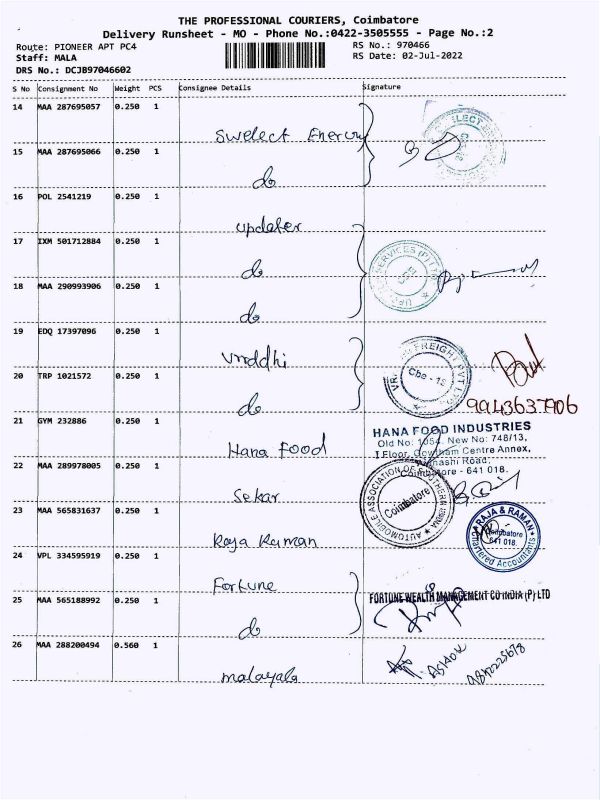 THE PROFESSIONAL COURIERS, Coimbatore
Delivery Runsheet - MO - Phone No.:0422-3505555 - Page No.:2
Route: PIONEER APT PC4
RS No.: 970466
Staff: MALA
RS Date: 02-Jul-2022
DRS No.: DCJB97046602
S No Consignment No Weight PCS Consignee Details Signature
14 MAA 287695057 0.250 1
Swelect Energy
15 MAA 287695066 0.250 1
do
16 POL 2541219 0.250 1
updater
17 IXM 501712884 0.250 1
do
SERVICES (P) LTD
18 MAA 290993906 0.250 1
do
19 EDQ 17397096 0.250 1
Vruddhi
FREIGHT PVT LTD
Cbe - 18
20 TRP 1021572 0.250 1
do
9943637906
21 GYM 232886 0.250 1
Hana Food
HANA FOOD INDUSTRIES
Old No: 1054, New No: 748/13,
I Floor, Gowtham Centre Annex,
Avinashi Road,
Coimbatore - 641 018.
22 MAA 289978005 0.250 1
Sekar
AUTOMOBILE ASSOCIATION OF SOUTHERN INDIA
Coimbatore
23 MAA 565831637 0.250 1
Raja Raman
RAJA & RAMAN
Coimbatore
641 018.
Chartered Accountants
24 VPL 334595919 0.250 1
Fortune
25 MAA 565188992 0.250 1
do
FORTUNE WEALTH MANAGEMENT CO INDIA (P) LTD
26 MAA 288200494 0.560 1
malayala